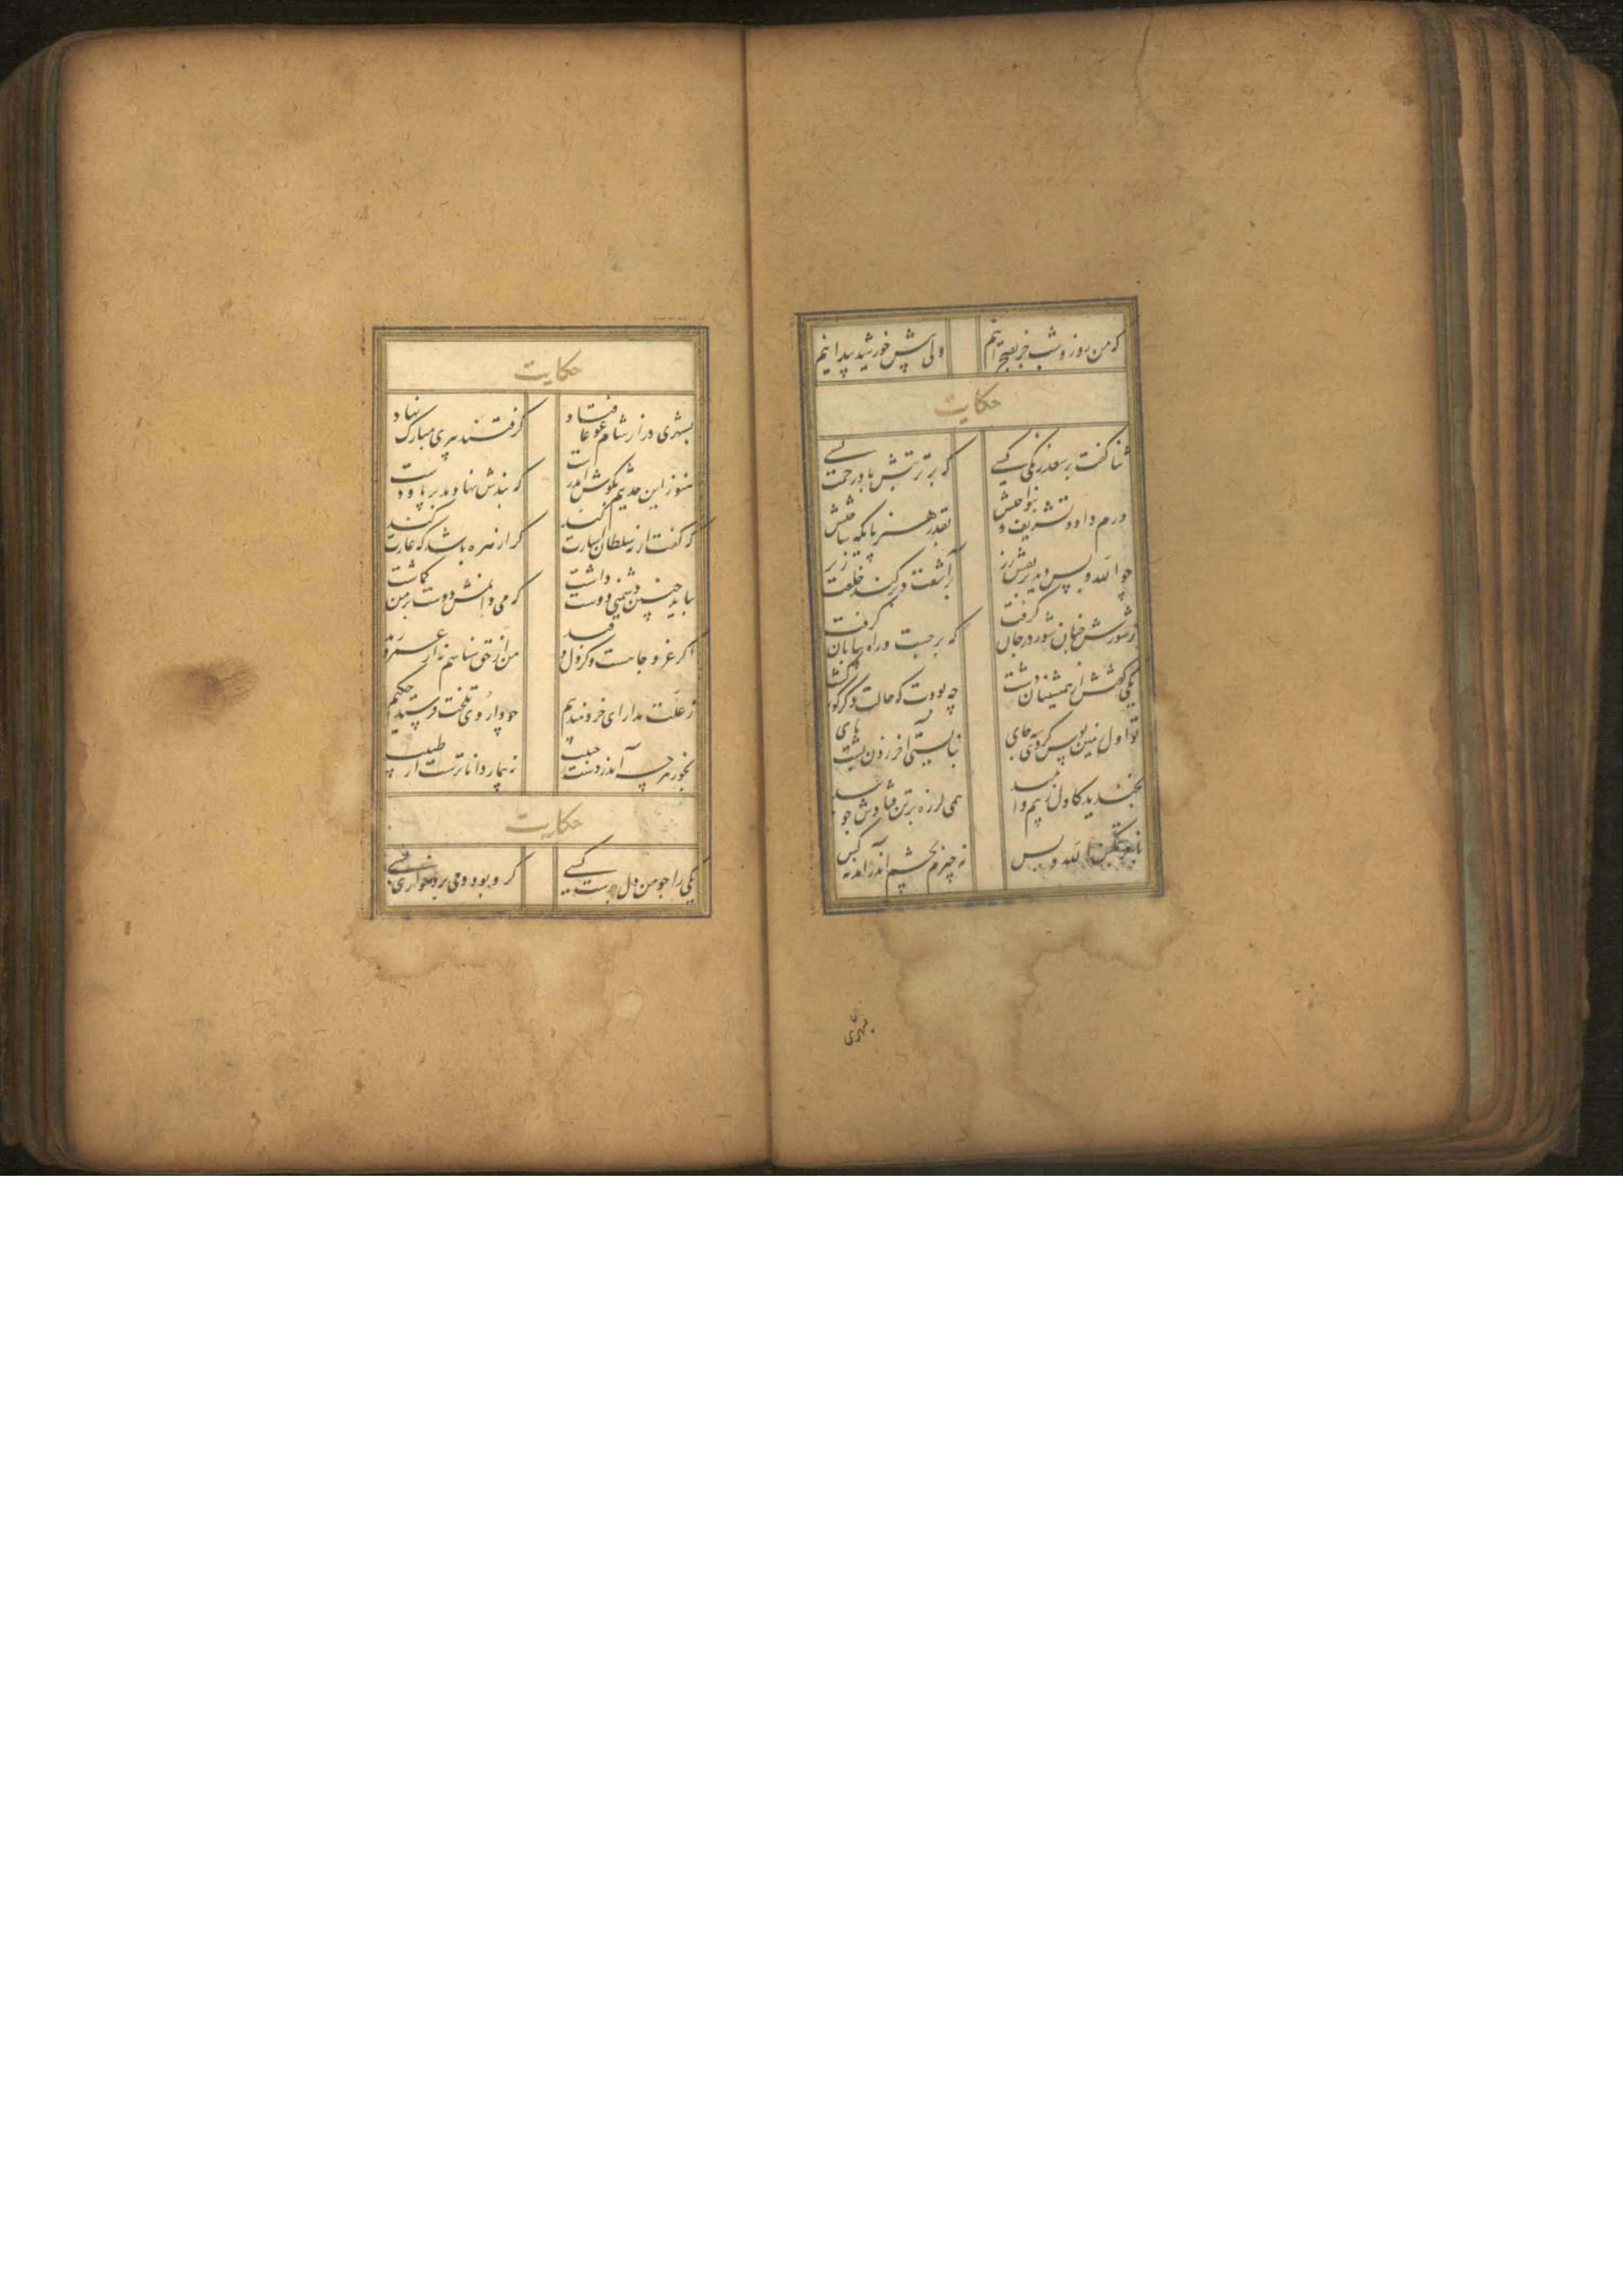 که من روز و شب جز بصحرا نیم ولی پیش خورشید پیدا نیم
حکایت
ثنا گفت بر سعد زنگی کسی که بر تربتش باد رحمت بسی
درم داد و تشریف و بنواختش بقدر هنر پایکه ساختش
چو الله و بس دید بر نقش زر برآشفت و برکند خلعت ز بر
ز شورش چنان شور در جان گرفت که برجست و راه بیابان گرفت
یکی گفتش از همنشینان دشت چه بودت که حالت دگرگونه گشت
تو اول زمین بوس کردی بجای نبایستی آخر زدن پشت پای
بخندید کاول ز بیم و امید همی لرزه بر تن فتادش چو بید
تمکین الله و بس نه چیزم بچشم اندر آمد نه کس
بشهری
حکایت
بشهری در از شام غوغا فتاد گرفتند پیری مبارک نهاد
هنوز این حدیثم بگوش اندرست که بندش نهادند بر پا و دست
که گفت ار نه سلطان اشارت کند کرا زهره باشد که غارت کند
بباید چنین دشمنی دوست داشت که می‌دانمش دوست بر من گماشت
اگر عز و جاهست و گر ذل و قید من از حق شناسم نه از عمرو زید
ز علت مدار ای خردمند بیم چو داروی تلخت فرستد حکیم
بخور هرچه آید ز دست حبیب نه بیمار داناترست از طبیب
حکایت
یکی را چو من دل بدست کسی گرو بود و می برد خواری بسی